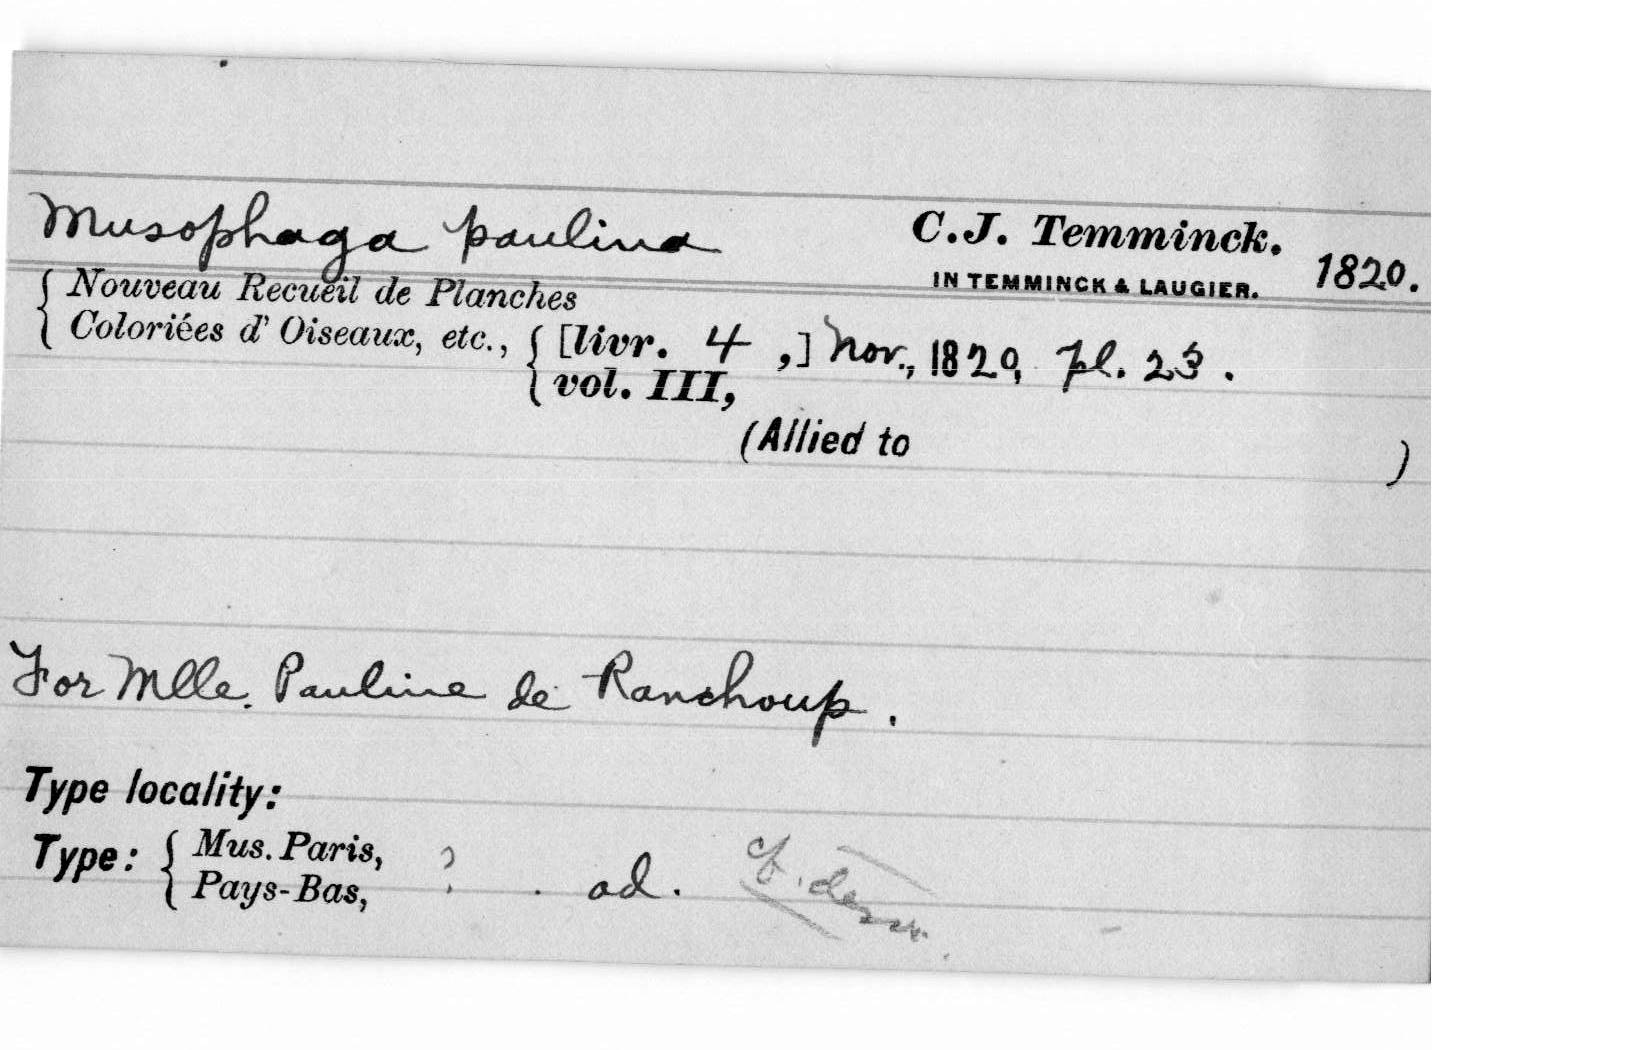 Musophaga paulina C.J. Temminck.
IN TEMMINCK & LAUGIER. 1820.
{ Nouveau Recueil de Planches
Coloriées d' Oiseaux, etc., { [livr. 4 ,] Nov., 1820, pl. 23.
vol. III,
(Allied to )
For Mlle. Pauline de Ranchoup.
Type locality:
Type: { Mus. Paris, ? . ad. cf. descr.
Pays-Bas,